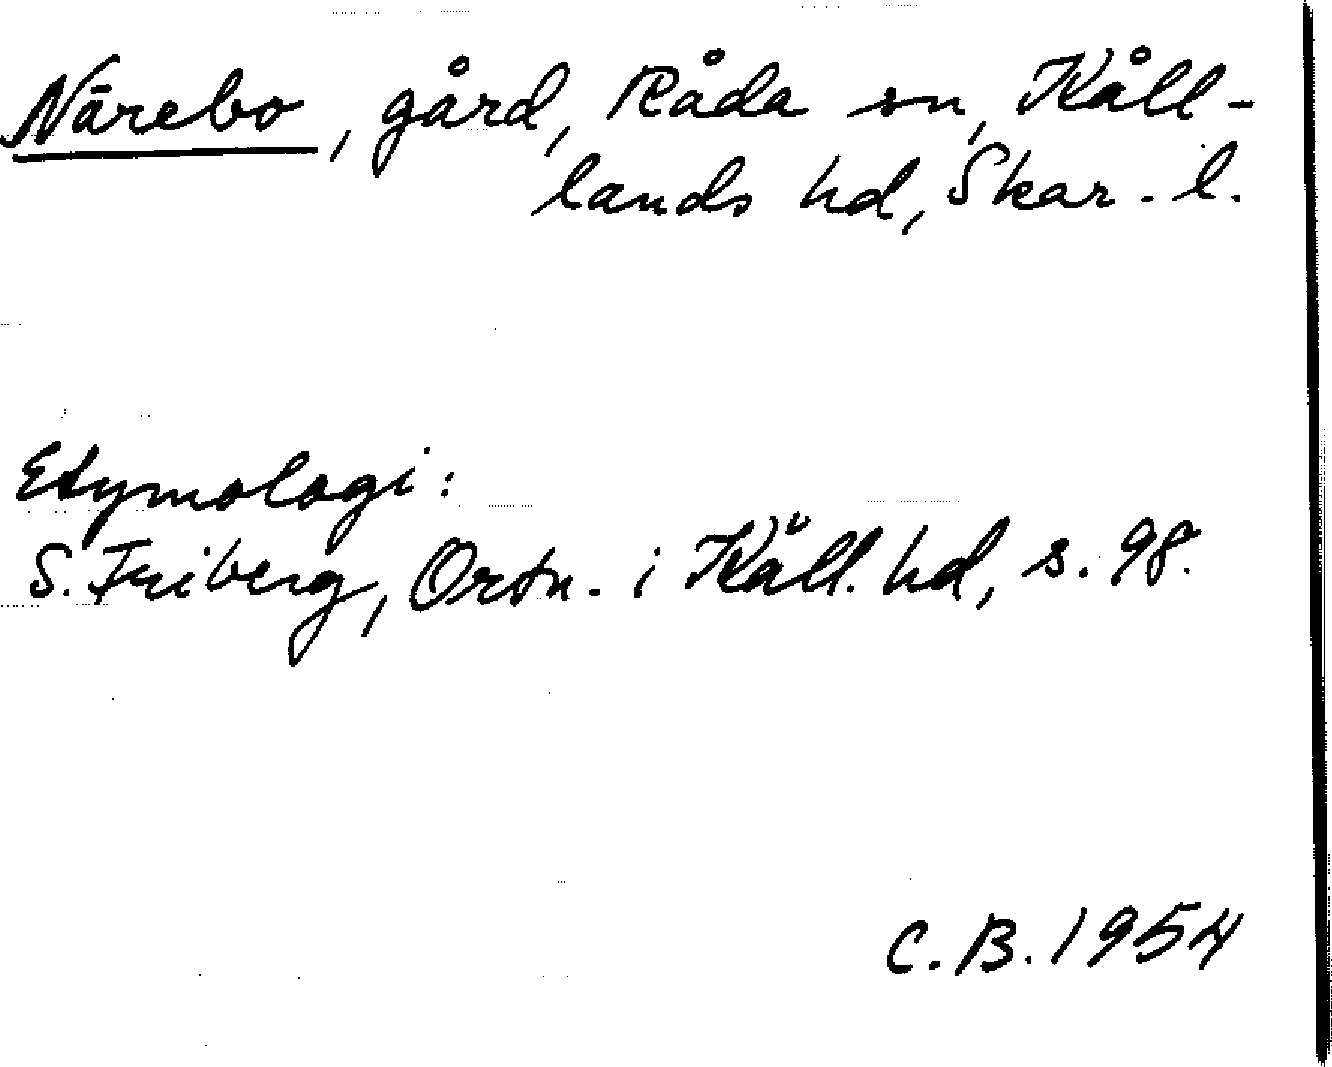 Närebo, gård, Råda sn, Kåll-
lands hd, Skar. l.
Etymologi:
S. Friberg, Ortn. i Kåll. hd, s. 98.
C. B. 1954